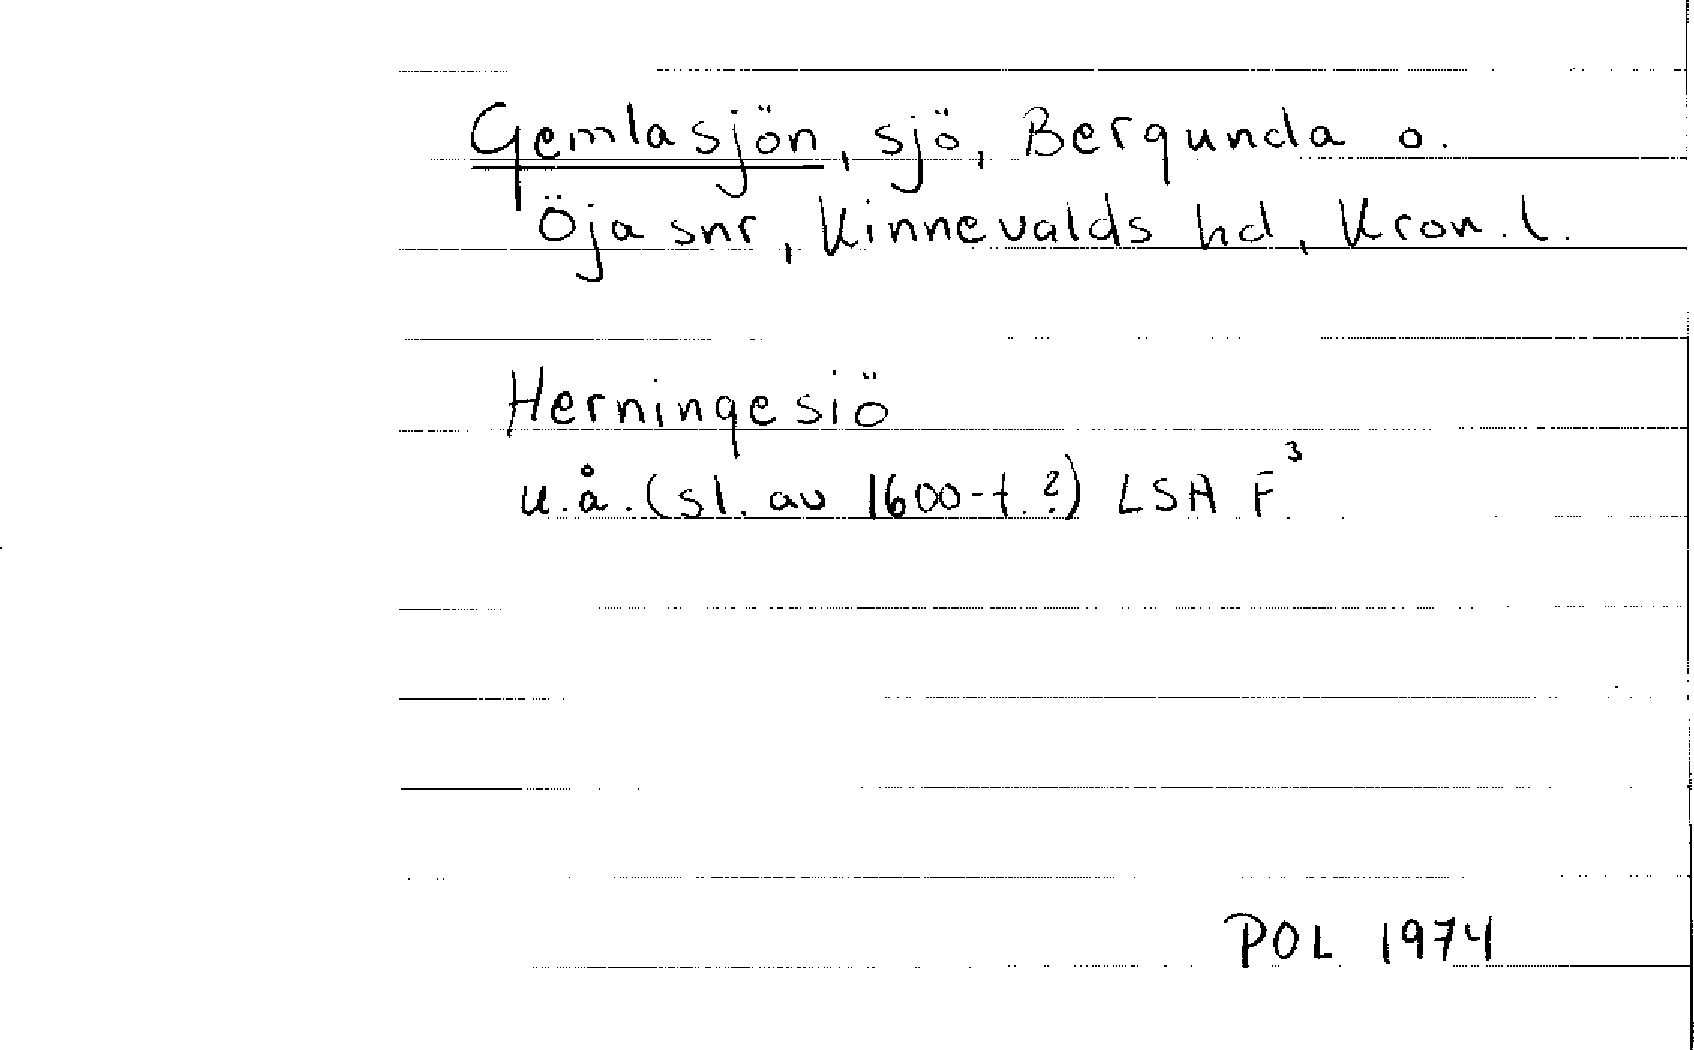 Gemlasjön, sjö, Bergunda o.
Öja snr, Kinnevalds hd, Kron. l.
Herningesiö
u.å. (sl. av 1600-t.?) LSA F³
POL 1974